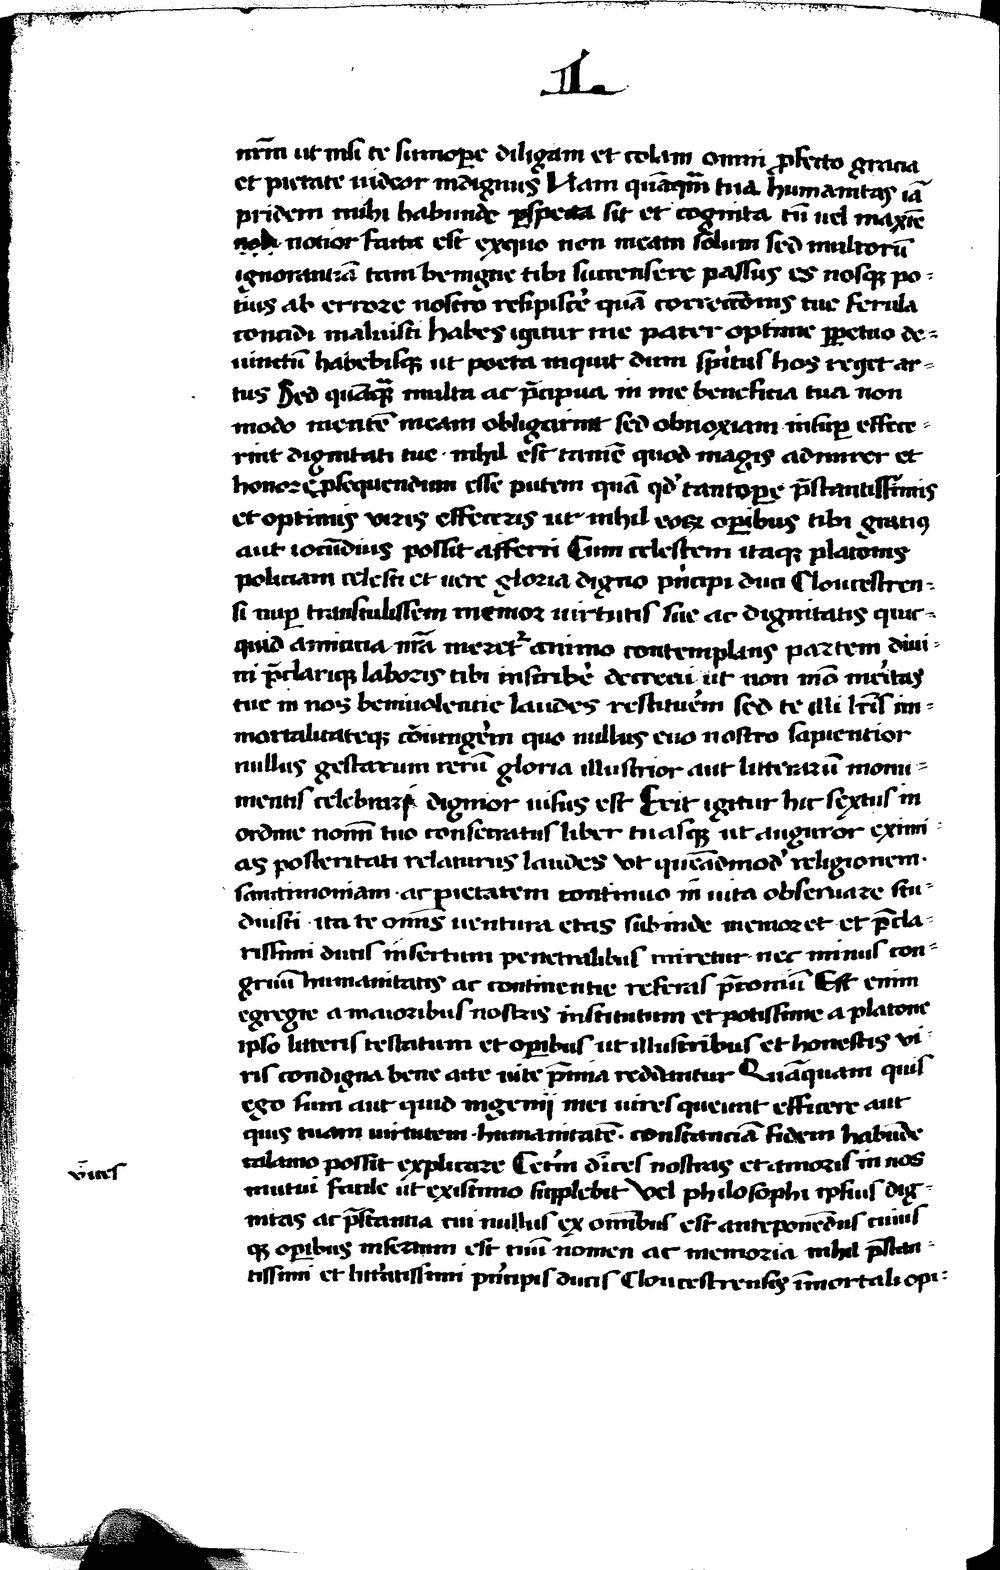 II.
nr̄m ut nisi te summope diligam et colam omni ꝓfecto gracia
et pietate uideor indignus Nam quāqm̄ tua humanitas iā
pridem mihi habunde ꝑspecta sit et cognita tū uel maxīe
notior facta est exquo non meam solum sed multorū
ignorantiā tam benigne tibi succensere passus es nosqꝫ po=
tius ab errore nostro resipiscē quā correctōnis tue ferula
concidi maluisti habes igitur me pater optime ꝑpetuo de=
uinctū habebisqꝫ ut poeta inquit dum spūtus hos reget ar=
tus Sed quāqꝫ multa ac p̄cipua in me beneficia tua non
modo mentē meam obligarint sed obnoxiam insuꝑ effece=
rint dignitati tue · nihil est tamē quod magis admirer et
honore ꝓsequendum esse putem quā qd̄ tantope p̄stantissimis
et optimis viris effeceris ut nihil eoꝝ oꝑibus tibi gratiꝯ
aut iocūdius possit afferri Cum celestem itaqꝫ platonis
policiam celesti et uere gloria digno pn̄cipi duci Cloucestren=
si nuꝑ transtulissem memor uirtutis sue ac dignitatis quic=
quid amicicia nr̄a meret᷑ animo contemplans partem diui=
ni p̄clariqꝫ laboris tibi inscribē decreui ut non mō meritas
tue in nos beniuolentie laudes restituerim sed te illi lr̄is im=
mortalitateqꝫ cōiungerim quo nullus euo nostro sapientior
nullus gestarum rerū gloria illustrior aut litterarū monu=
mentis celebrari dignior uisus est Erit igitur hic sextus in
ordine nomī tuo consecratus liber tuasqꝫ ut auguror eximi=
as posteritati relaturus laudes vt queādmod̄ religionem·
sanctimoniam · ac pietatem continuo in uita obseruare stu=
duisti · ita te omīs uentura etas subinde memoret et p̄cla=
rissimi ducis insertum penetralibus miretur · nec minus con=
gruū humanitatis ac continentie referas p̄comiū Est enim
egregie a maioribus nostris institutum et potissime a platone
ipso litteris testatum et oꝑibus ut illustribus et honestis vi=
ris condigna bene acte uite p̄mia reddantur Quāquam quis
ego sum aut quid ingenij mei uires queunt efficere aut
quis tuam uirtutem · humanitatē · constanciā fidem habūde
calamo possit explicare Cetm̄ vīces nostras et amoris in nos
mutui facile ut existimo supplebit Vel philosophi ipsius dig=
nitas ac p̄stantia cui nullus ex omībus est anteponēdus cuius
qꝫ oꝑibus insertum est tuū nomen ac memoria nihil p̄stan=
tissimi et litteratissimi pn̄cipis ducis Cloucestrensis īmortali opi=
vīces